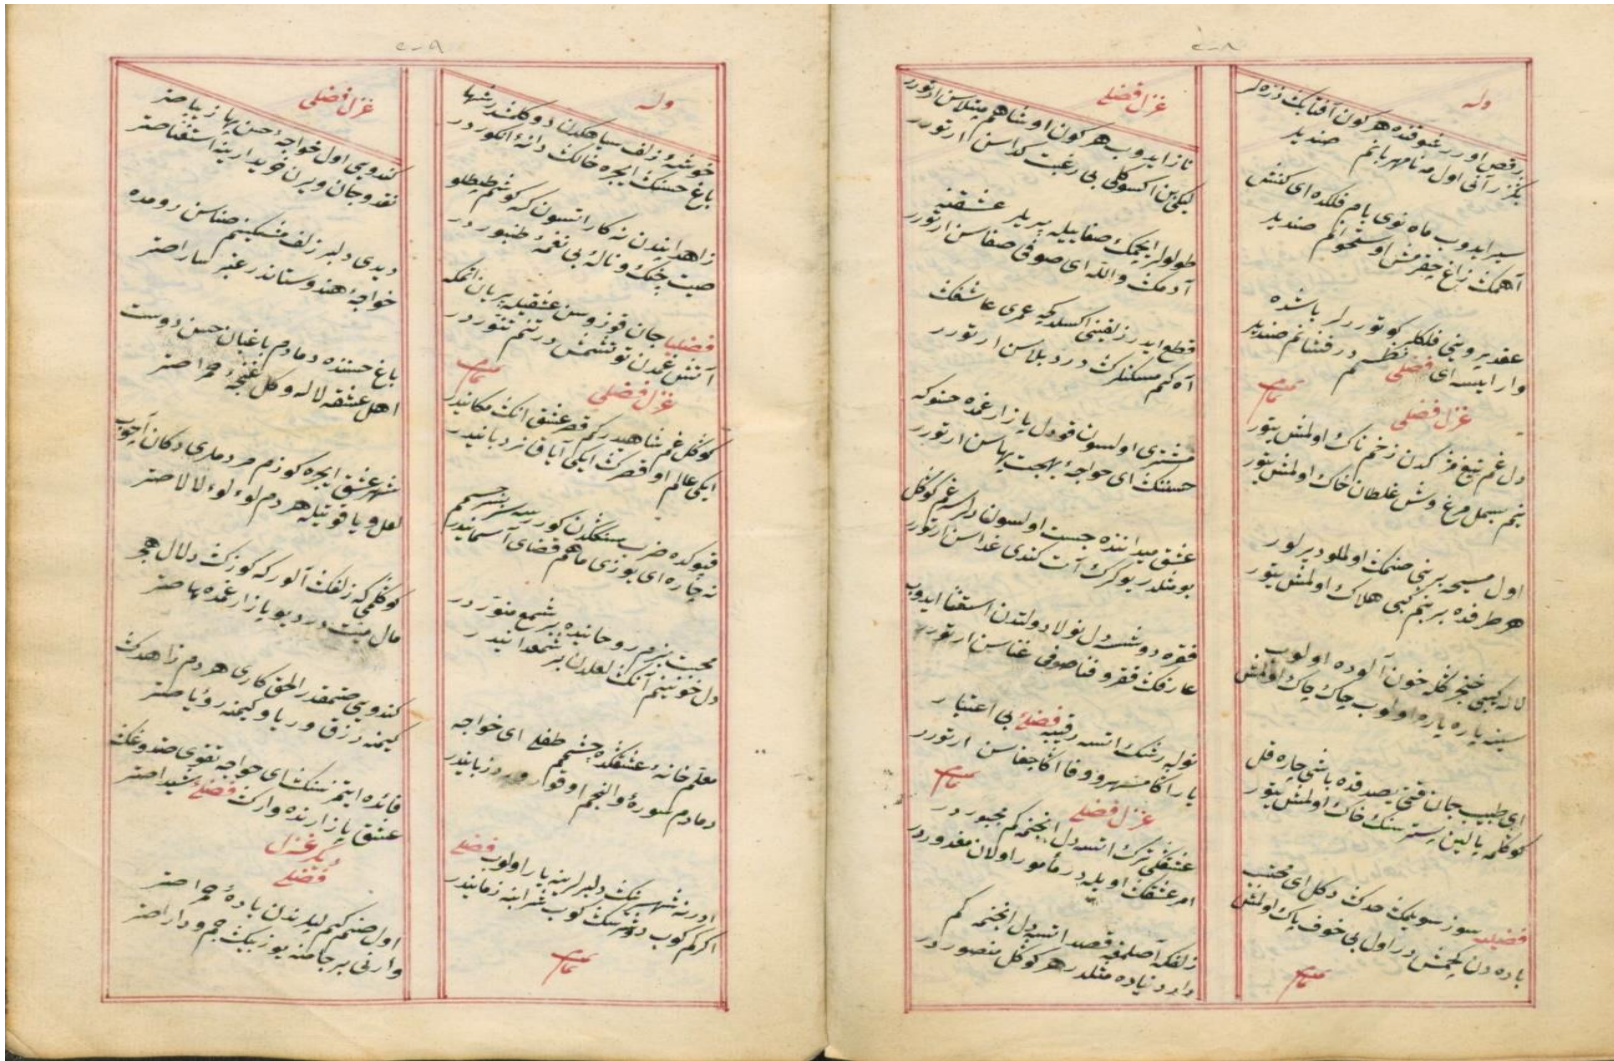 ٢٠٨
وله
رقص اورر شوقنده هر كون آفتابك ذره لر
بكزر آنى اول مه نامهربانم صنديد
سير ايدوب ماه نوى بام فلكده اى كنش
آهمك زاغ استخوانم صنديد
عقد پروينى فلكلر كوتورر لر باشده
وار ايسه اى فضلى نظم در فشانم صنديد
تمام
غزل فضلى
دل غم تيغ مژ كدن زخم ناك اولمش يتور
بنم بسمل مرغ وش غلطان خاك اولمش يتور
اول مسيحه بر بنى صنمك اولملو دير لور
هر طرفده بر بنم كبى هلاك اولمش يتور
لاله كبى خنجر كله خون آلوده اولوب
سينه پاره پاره اولوب چاك چاك اولمش
اى طبيب جان قتى يصدقده باشى چاره قل
كوكلمه بالين بستر سنك خاك اولمش يتور
فضليه سوز سويلمك حدك دكل اى محتسب
باده دن كچمش در اول بى خوف پاك اولمش
تمام
غزل فضلى
ناز ايدوب هر كون او شاهم مبتلاسن ارتورر
ليكن بن اكسوكلى بى رغبت كداسن ارتورر
طولولر ايچمك صفاييله پريلر عشقنه
آدمك والله اى صوفى صفاسن ارتورر
قطع ايدر زلفينى اكسلدكجه عمرى عاشقك
آه كم مسكنلرك درد بلاسن ارتورر
مشترى اولسون قو دل بازار غمده حسنوكه
حسنك اى خواجه بهجت بهاسن ارتورر
عشق ميداننده جست اولسون دلرسه غم كوكل
بو مثلدر يوكرك آت كندى غداسن ارتورر
فقره دوشسه دل نولا دولتدن استغنا ايدوب
عارفك فقر و فنا صوفى غناسن ارتورر
نوله رشك اتسه رقيبه فضلئ بى اعتبار
يار اكا مهر و وفا اكا جفاسن ارتورر
تمام
غزل فضلى
عشقكى ترك اتسه دل انجنمه كم مجبور در
امر عشقك اويله در مأمور اولان معذور در
زلفكه آصلمغه قصد اتسه دل انجنمه كم
دار دنياده مثلدر هر كوكل منصور در
٢٠٩
وله
خوشه زلف سياهكدن دوكلمشدر شها
باغ حسنك ايچره خالك دانه انكور در
زاهدا پندن نه كار اتسون كه كوشم طوطلو
صيت چنك و ناله نى نغمه طنبور در
فضليا جان قوزوسن عشقيله بريان اتمكه
آتش غمدن توتشمش در تنم تنور در
تمام
غزل فضلى
كوكل غم شاهيدر كم قصر عشق انك مكانيدر
ايكى عالم او قصرك ايكى آياق نردبانيدر
قپوكده ضرب سنكدن كوررسه بنى جسمم
نه چاره اى يوزى ماهم قضاى آسمانيدر
محبت بزم روحانيده بر شمع منور در
دل خونينم آنك لعلدن بر شمعدانيدر
معلم خانه عشقكده چشمم طفلى اى خواجه
دمادم سوره والنجم اوقور ورد زبانيدر
ادرنه شهرينك دلبرلرينه يار اولوب فضلى
اكرم كوب دونرسك كوب شرابنه زمانيدر
تمام
غزل فضلى
كندويى اول خواجه حسن بها زيبا صتر
نقد و جان ويرن خريدارينه استغنا صتر
ديدى دلبر زلف مشكينم صناسن رومده
خواجه هندوستاندر عنبر سارا صتر
باغ حسننده دمادم باغبان حسن دوست
اهل عشقه لاله و كل غنچه حمرا صتر
شهر عشق ايچره كوزم مردملرى دكان آچوب
لعل و ياقوتيله هر دم لؤلؤ لالا صتر
كوكلمى كه زلفك آلور كه كوزك دلال هجر
مال ميت در ديو بازار غمده پها صتر
كندويى صتمقدر الحق كارى هر دم زاهدك
كيمنه زرق و ريا و كيمنه رؤيا صتر
فائده ايتمز سنك اى خواجه تقوى صندوغك
عشق بازارنده وارك فضلئ شيدا صتر
ديكر غزل
فضلى
اول صنم كيم لبلرندن باده حمرا صتر
وارنى بر جامنه يوز بيك جم و دارا صتر
تمام